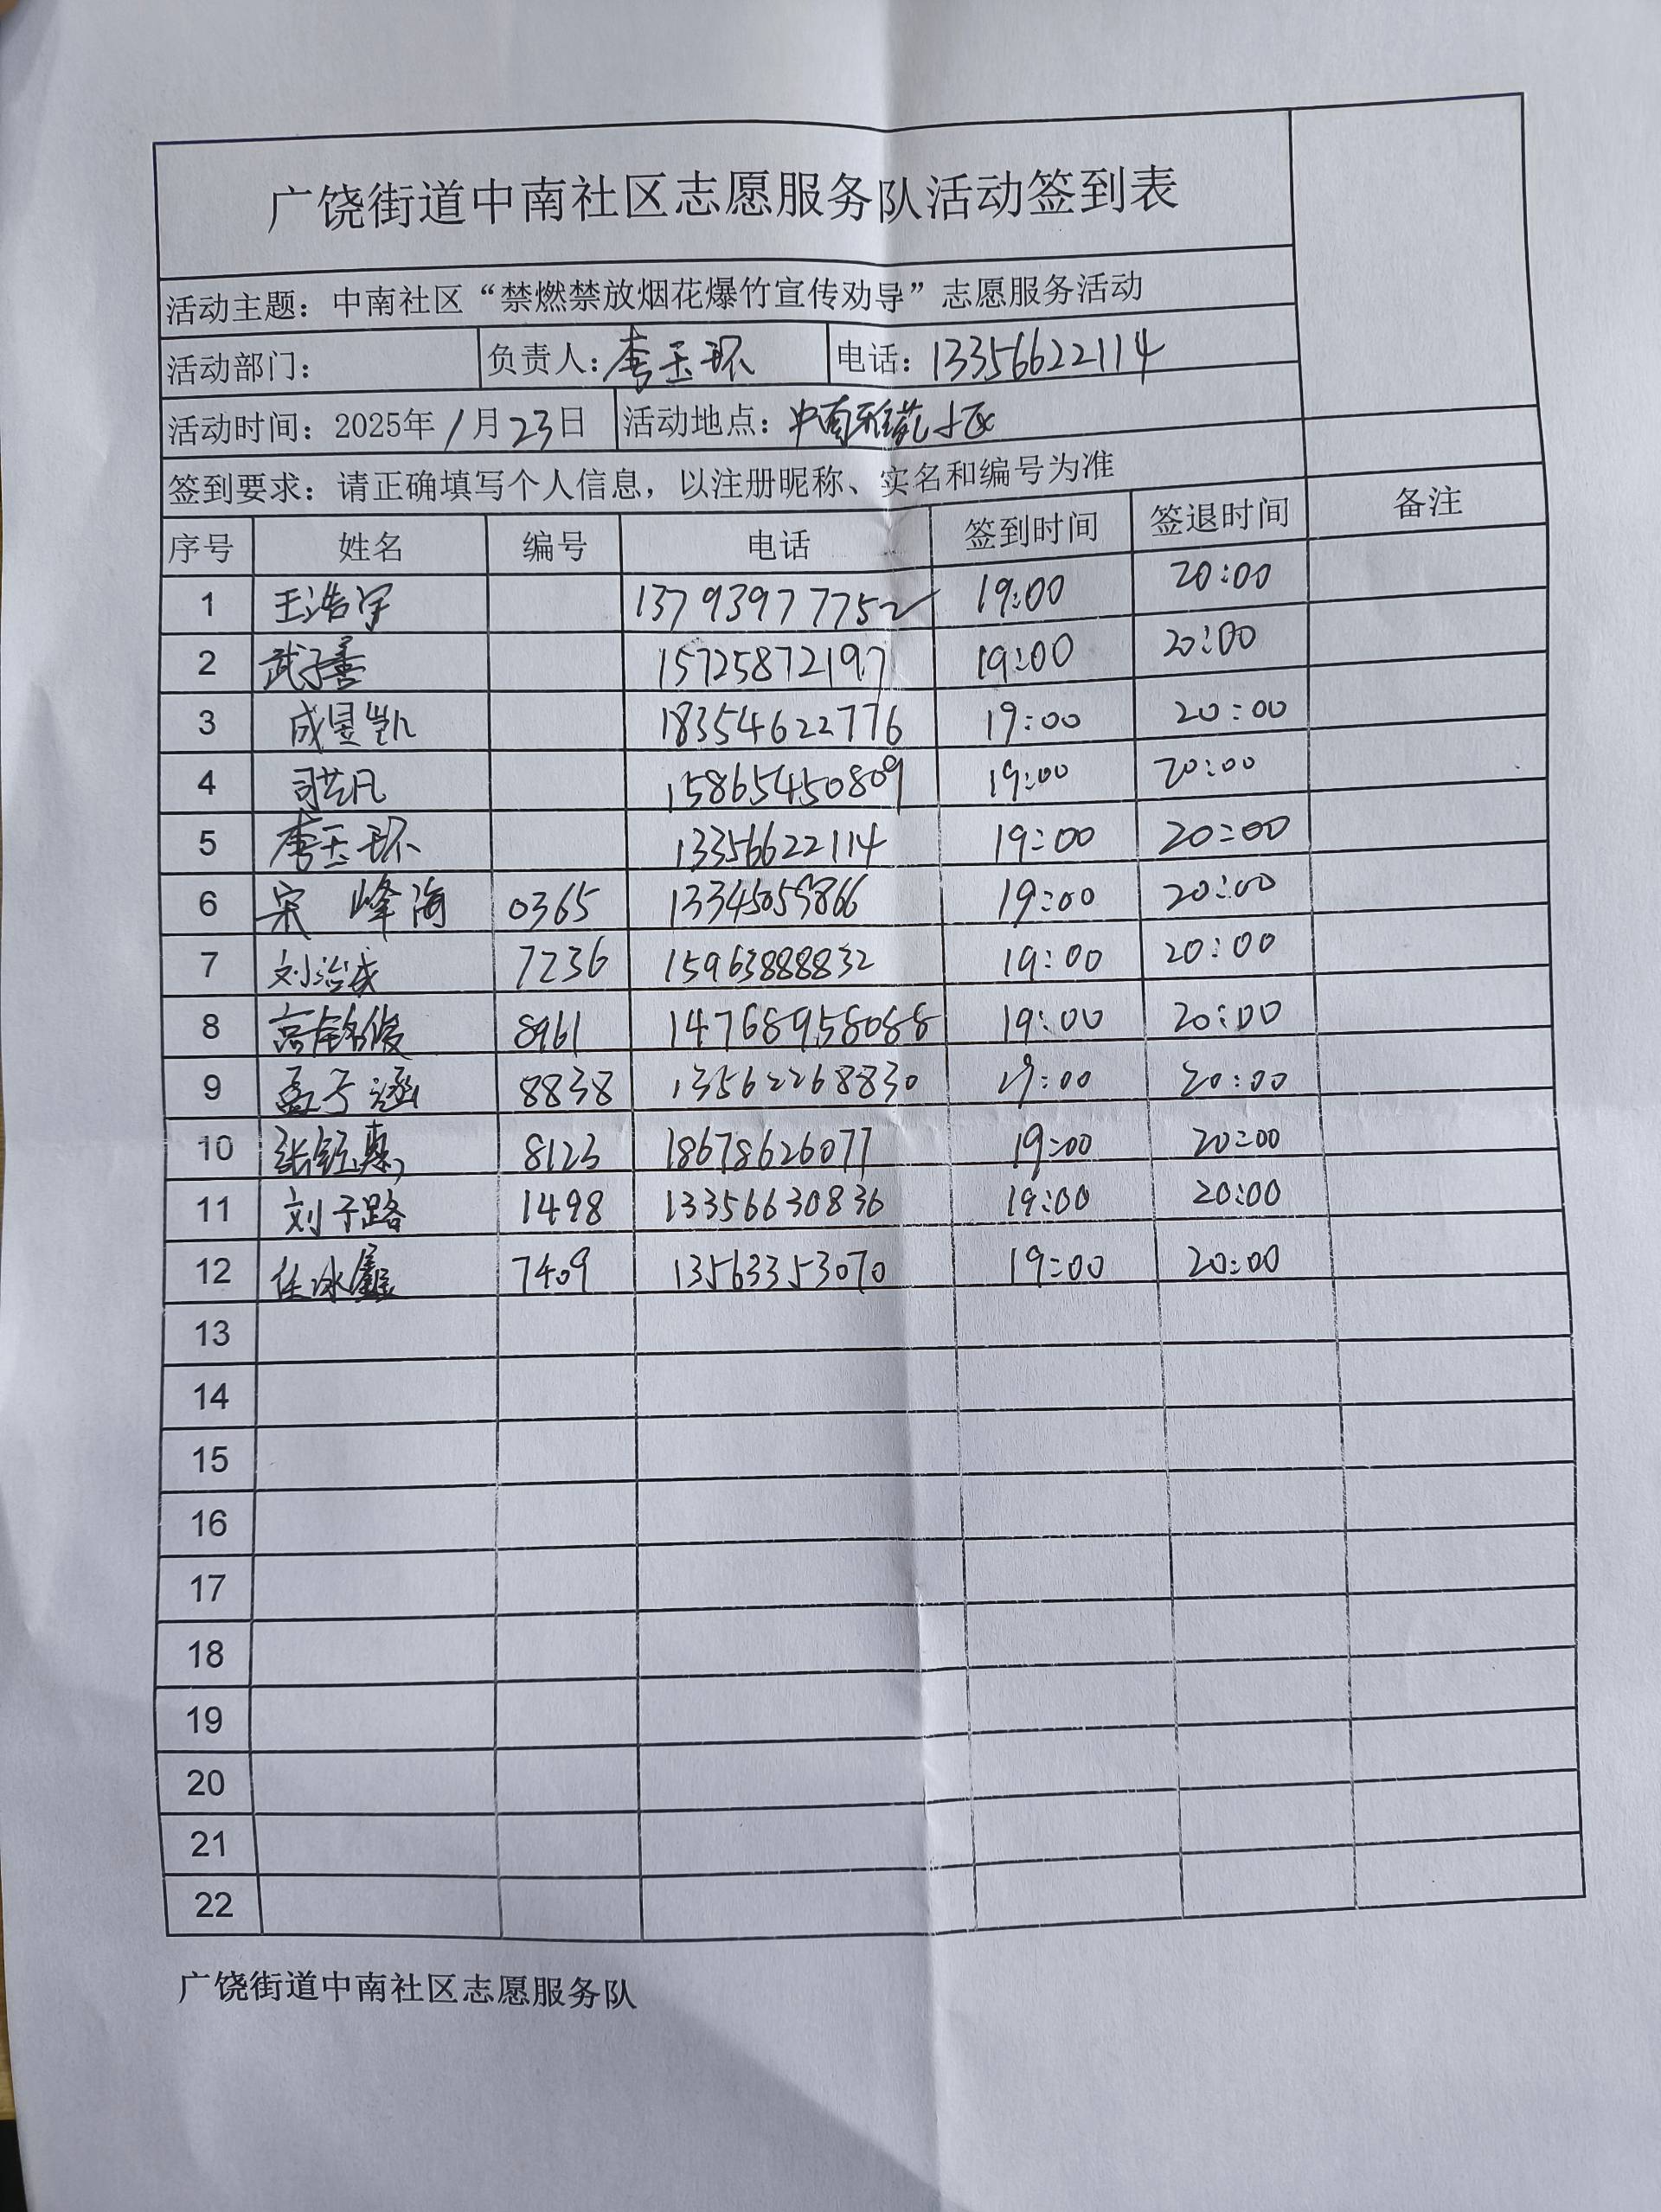 广饶街道中南社区志愿服务队活动签到表
活动主题：中南社区“禁燃禁放烟花爆竹宣传劝导”志愿服务活动
活动部门： 负责人：李玉环 电话：13356622114
活动时间：2025年1月23日 活动地点：中南雅苑小区
签到要求：请正确填写个人信息，以注册昵称、实名和编号为准
序号 姓名 编号 电话 签到时间 签退时间 备注
1 王浩宇 13793977752 19:00 20:00
2 武子善 15725872197 19:00 20:00
3 成昱凯 18354622776 19:00 20:00
4 司艺凡 15865450809 19:00 20:00
5 李玉环 13356622114 19:00 20:00
6 宋峰海 0365 19:00 20:00
7 刘治成 7236 15963888832 19:00 20:00
8 8961 14768958088 19:00 20:00
9 孟子涵 8838 13562268830 19:00 20:00
10 张钰惠 8123 18678626077 19:00 20:00
11 刘子路 1498 13356630836 19:00 20:00
12 任冰鑫 7409 13563353070 19:00 20:00
13
14
15
16
17
18
19
20
21
22
广饶街道中南社区志愿服务队